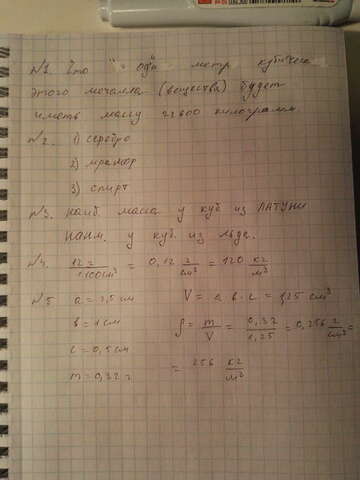 №1. Что "один" метр кубическ
этого металла (вещества) будет
иметь массу 22600 килограмм.
№2. 1) серебро
2) мрамор
3) спирт
№3. наиб. масса у куб из ЛАТУНИ
наим. у куб. из льда.
№4. 12 г / 100 см³ = 0,12 г/см³ = 120 кг/м³
№5 a = 2,5 см V = a·b·c = 1,25 см³
b = 1 см ρ = m/V = 0,32/1,25 = 0,256 г/см³ =
c = 0,5 см
m = 0,32 г = 256 кг/м³